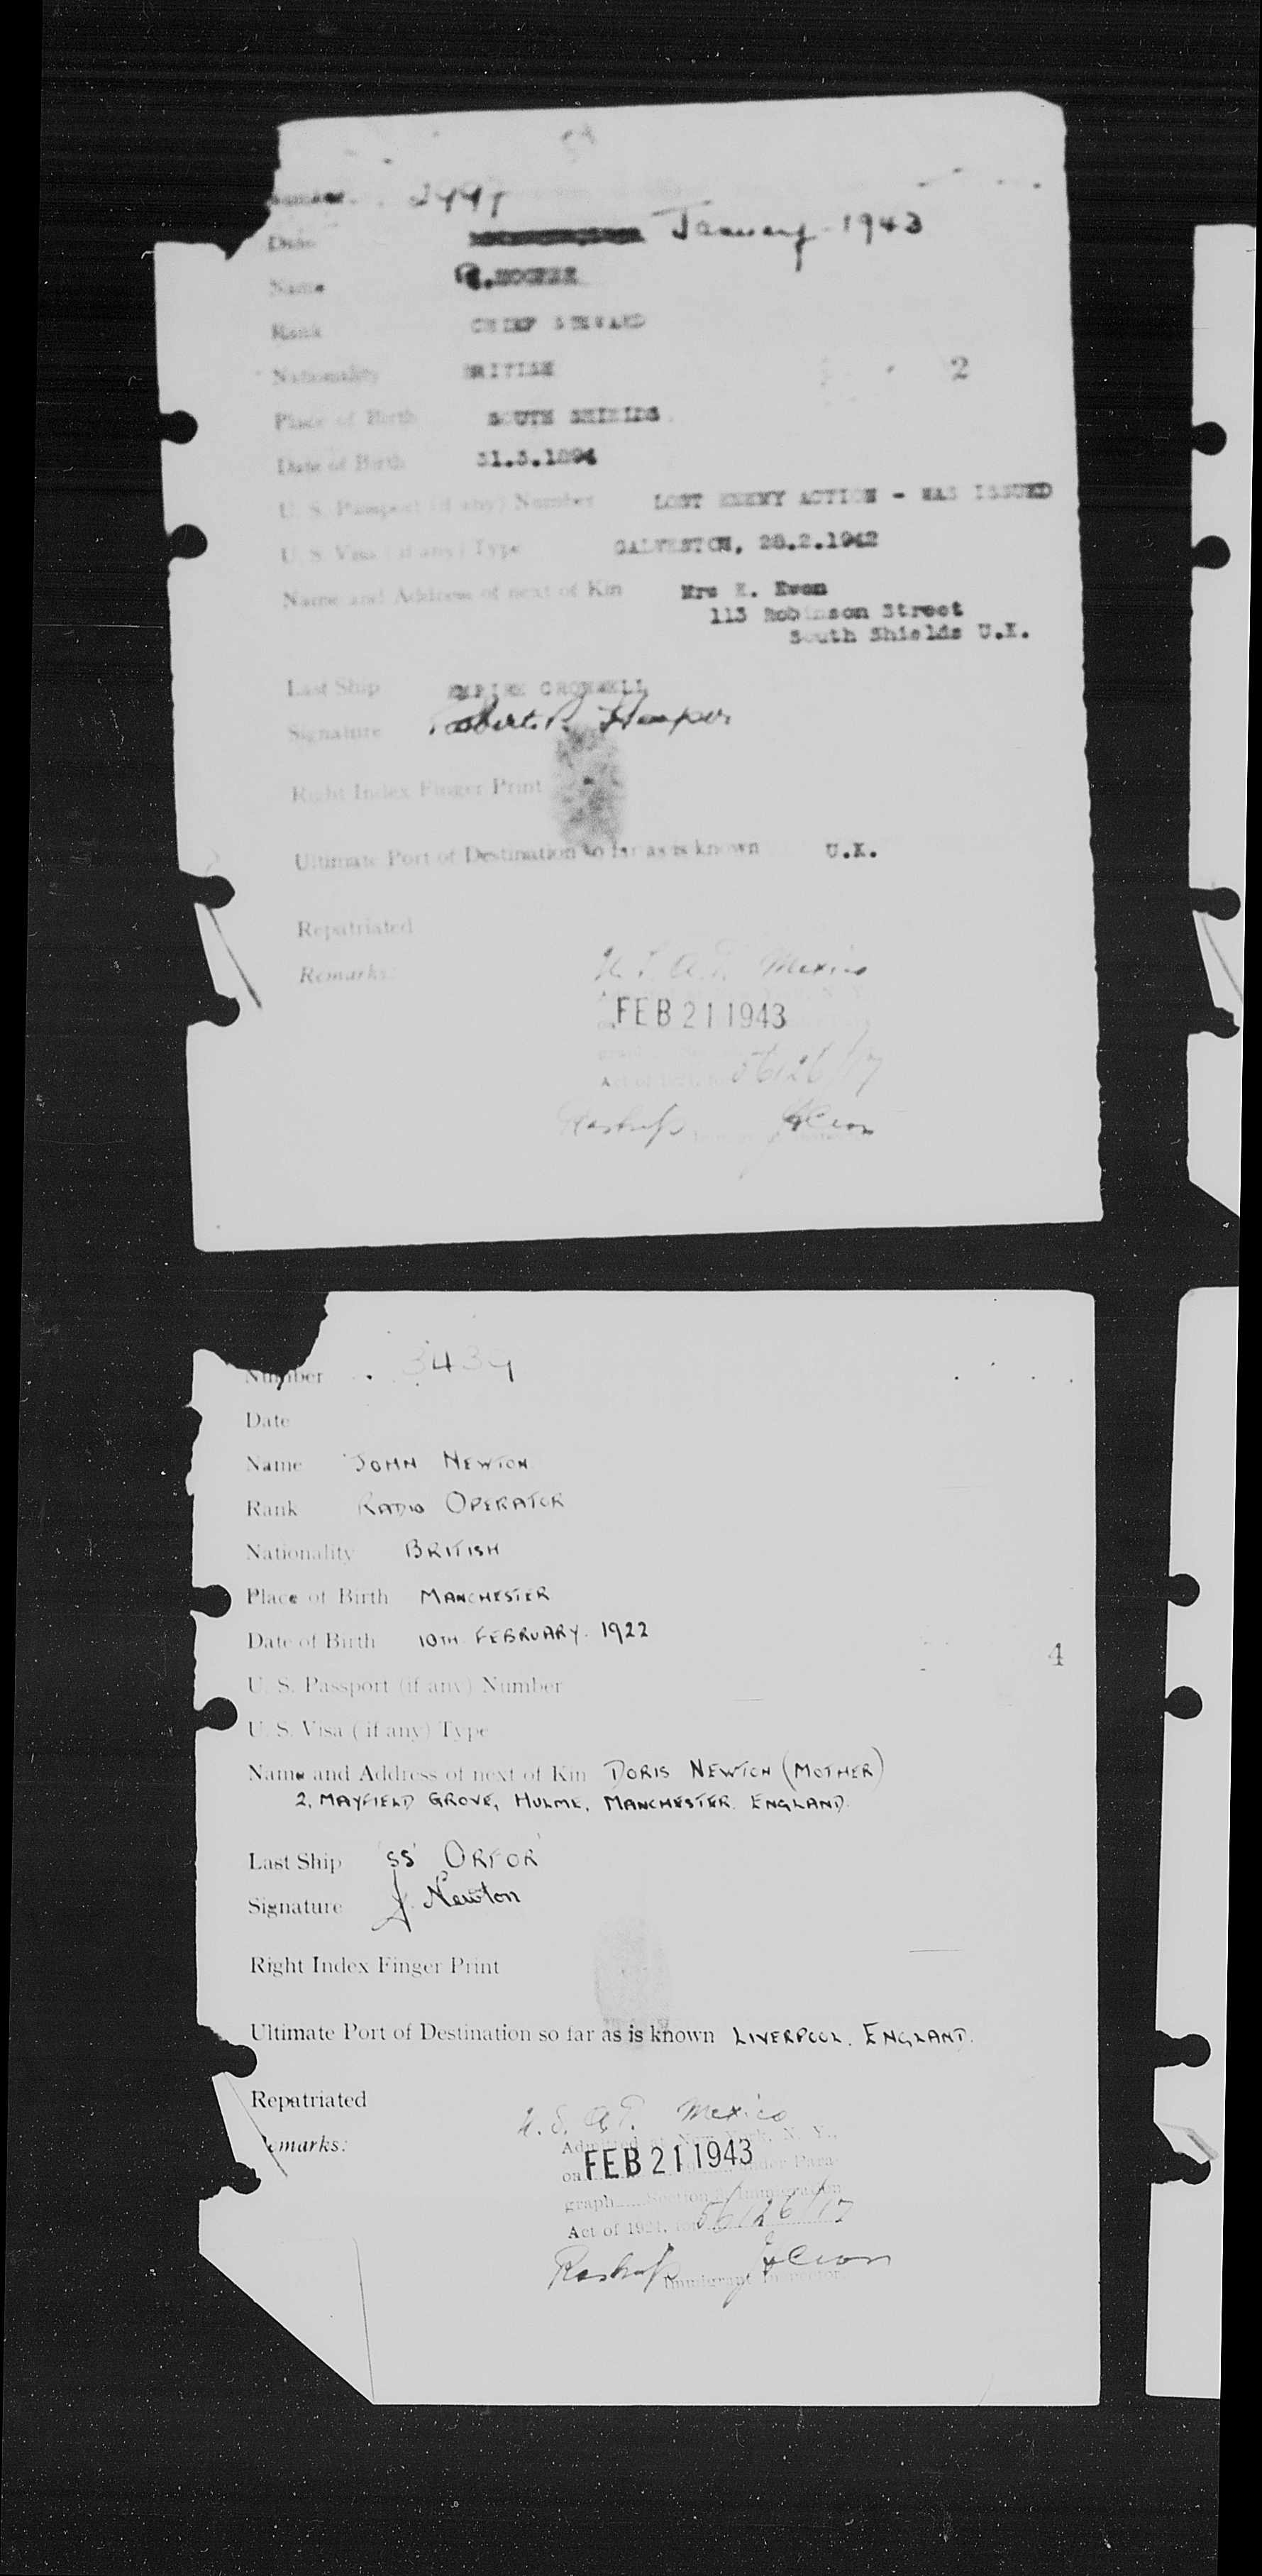 Number
Date January 1943
Name R.
Rank CHIEF STEWARD
Nationality BRITISH
2
Place of Birth SOUTH SHIELDS
Date of Birth 31.3.1894
U. S. Passport (if any) Number LOST ENEMY ACTION - WAS ISSUED
U. S. Visa (if any) Type GALVESTON, 28.2.1942
Name and Address of next of Kin Mrs E. Ewen
113 Robinson Street
South Shields U.K.
Last Ship EMPIRE CROMWELL
Signature Robert
Right Index Finger Print
Ultimate Port of Destination so far as is known U.K.
Repatriated
Remarks:
U.S.A.T. Mexico
FEB 21 1943
Act of 1924, 56126/17
Number 3439
Date
Name JOHN NEWTON
Rank RADIO OPERATOR
Nationality BRITISH
Place of Birth MANCHESTER
Date of Birth 10TH FEBRUARY 1922
4
U. S. Passport (if any) Number
U. S. Visa (if any) Type
Name and Address of next of Kin DORIS NEWTON (MOTHER)
2, MAYFIELD GROVE, HULME, MANCHESTER. ENGLAND.
Last Ship 'SS' ORFOR
Signature J. Newton
Right Index Finger Print
Ultimate Port of Destination so far as is known LIVERPOOL. ENGLAND.
Repatriated
emarks:
U.S.A.T. Mexico
Admitted at New York, N. Y.,
on FEB 21 1943 under Para-
graph Section 3, Immigration
Act of 1924, 56126/17
Immigrant Inspector